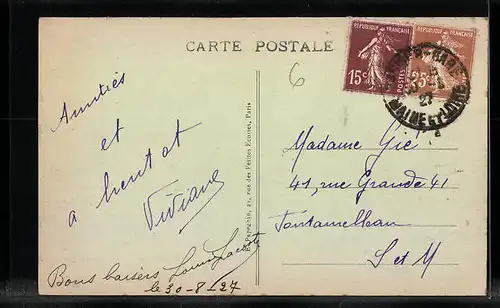 CARTE POSTALE
REPUBLIQUE FRANÇAISE
15c
POSTES
REPUBLIQUE FRANÇAISE
25c
MAINE ET LOIRE
6
Amitiés
et
a bientot
Viviane
Bons baisers
le 30-8-27
21, rue des Petites Ecuries, Paris
Madame Gié
41, rue Grande 41
Fontainebleau
S et M